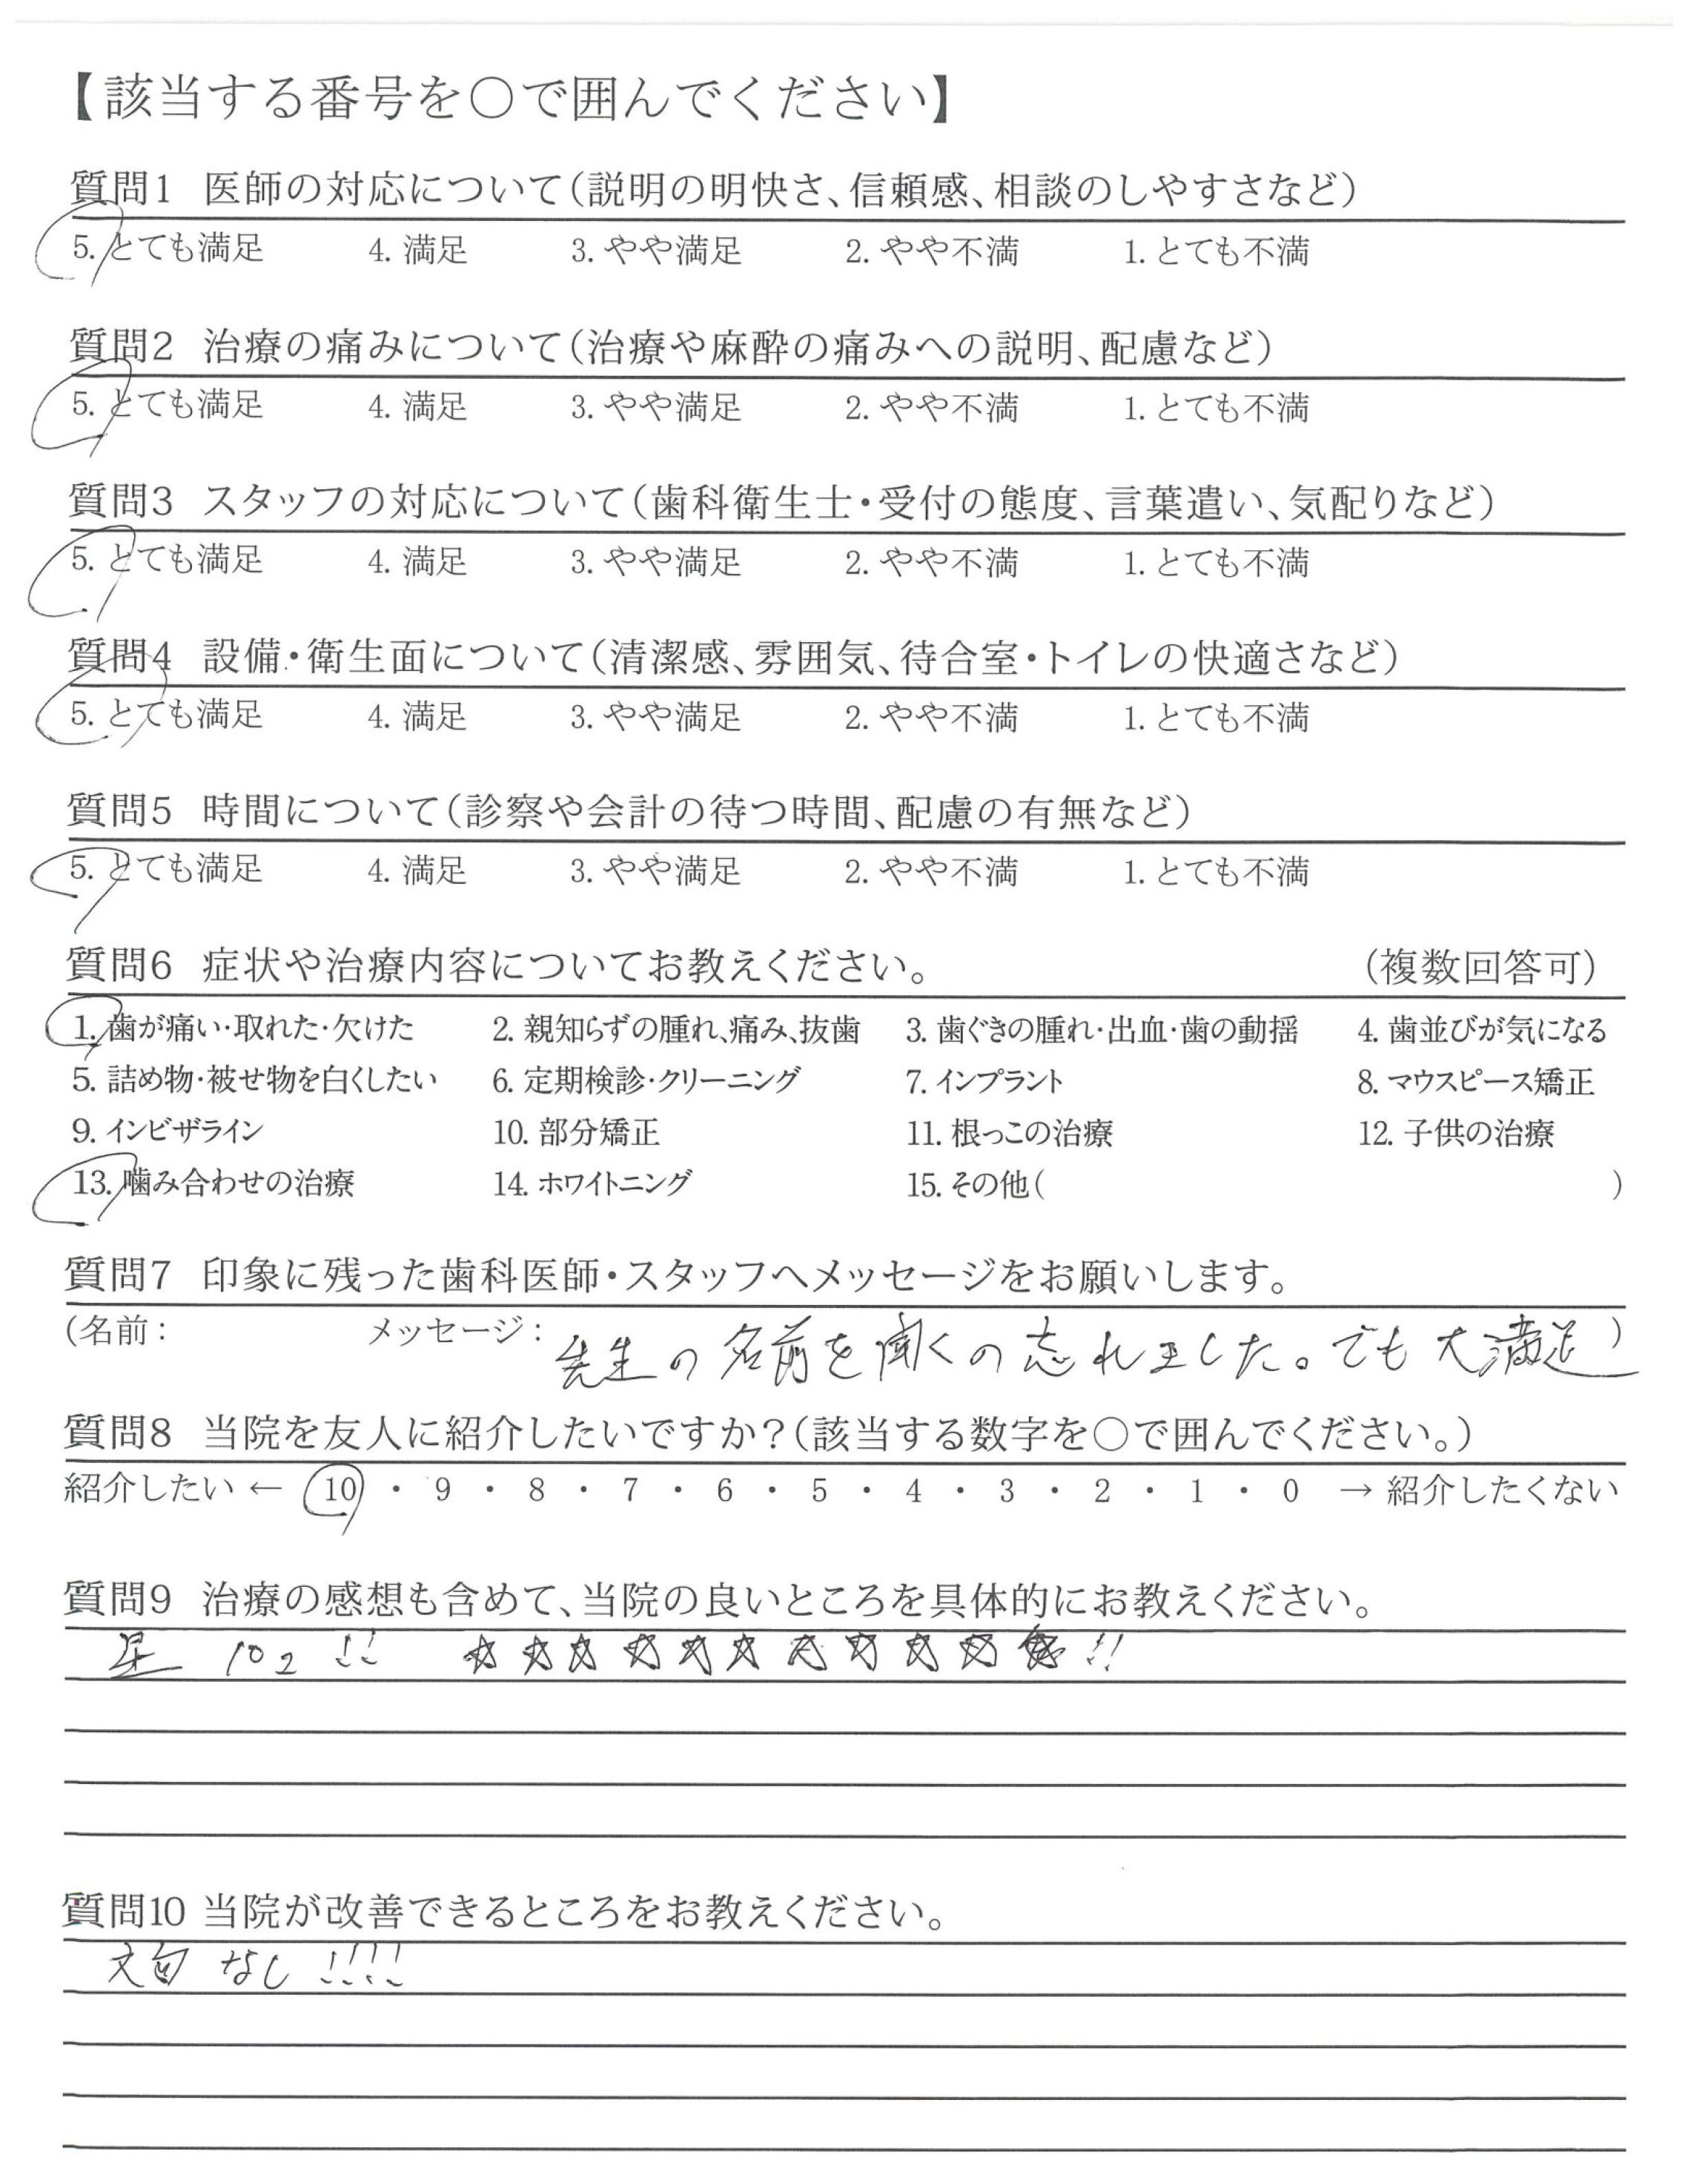 【該当する番号を○で囲んでください】
質問1 医師の対応について(説明の明快さ、信頼感、相談のしやすさなど)
5. とても満足 4. 満足 3. やや満足 2. やや不満 1. とても不満
質問2 治療の痛みについて(治療や麻酔の痛みへの説明、配慮など)
5. とても満足 4. 満足 3. やや満足 2. やや不満 1. とても不満
質問3 スタッフの対応について(歯科衛生士・受付の態度、言葉遣い、気配りなど)
5. とても満足 4. 満足 3. やや満足 2. やや不満 1. とても不満
質問4 設備・衛生面について(清潔感、雰囲気、待合室・トイレの快適さなど)
5. とても満足 4. 満足 3. やや満足 2. やや不満 1. とても不満
質問5 時間について(診察や会計の待つ時間、配慮の有無など)
5. とても満足 4. 満足 3. やや満足 2. やや不満 1. とても不満
質問6 症状や治療内容についてお教えください。 (複数回答可)
1. 歯が痛い・取れた・欠けた 2. 親知らずの腫れ、痛み、抜歯 3. 歯ぐきの腫れ・出血・歯の動揺 4. 歯並びが気になる
5. 詰め物・被せ物を白くしたい 6. 定期検診・クリーニング 7. インプラント 8. マウスピース矯正
9. インビザライン 10. 部分矯正 11. 根っこの治療 12. 子供の治療
13. 噛み合わせの治療 14. ホワイトニング 15. その他( )
質問7 印象に残った歯科医師・スタッフへメッセージをお願いします。
(名前: メッセージ: 先生の名前を聞くの忘れました。でも大満足)
質問8 当院を友人に紹介したいですか?(該当する数字を○で囲んでください。)
紹介したい ← 10 ・ 9 ・ 8 ・ 7 ・ 6 ・ 5 ・ 4 ・ 3 ・ 2 ・ 1 ・ 0 → 紹介したくない
質問9 治療の感想も含めて、当院の良いところを具体的にお教えください。
星 10コ !! ☆☆☆☆☆☆☆☆☆☆☆!!
質問10 当院が改善できるところをお教えください。
文句なし!!!!